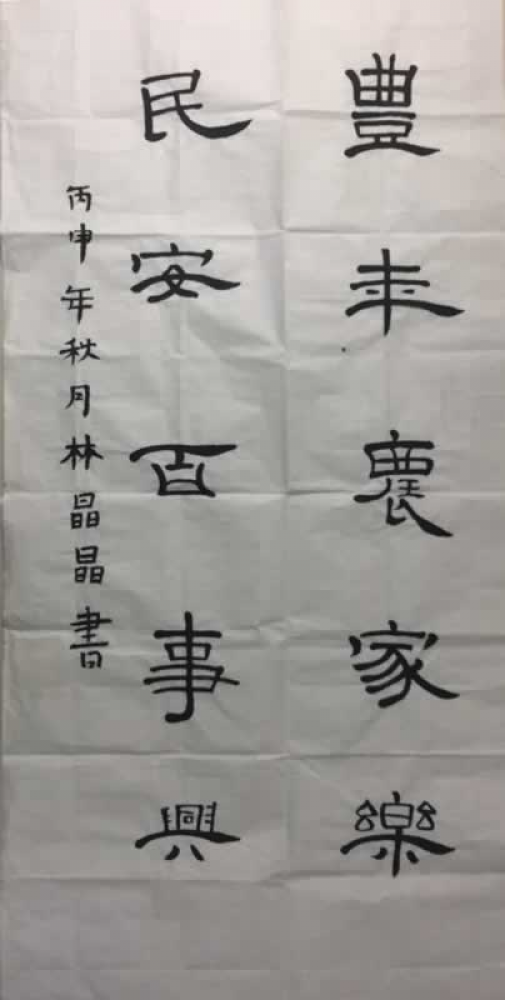 豐年農家樂
民安百事興
丙申年秋月林晶晶書